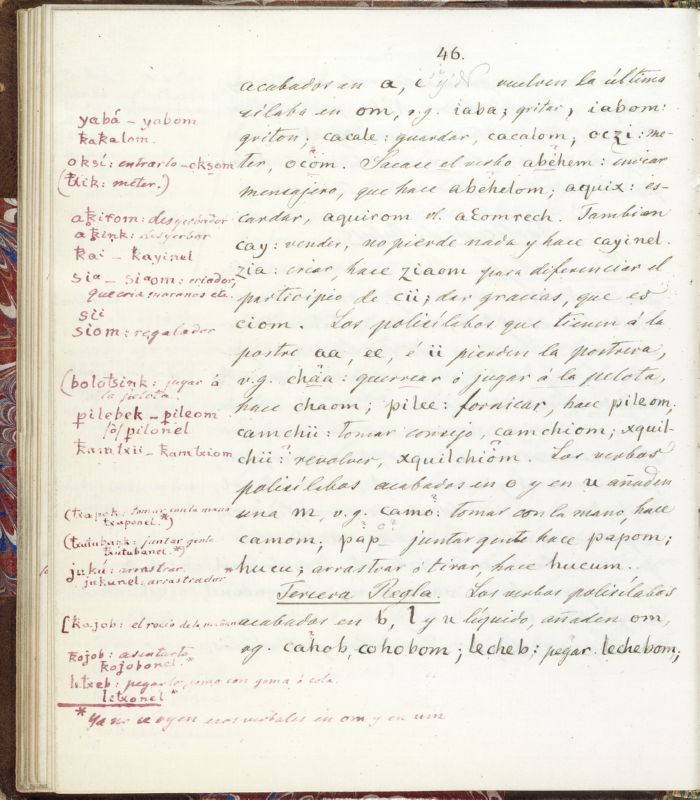 46.
acabados en a, e y vuelven la última
sílaba en om, v.g. iaba; gritar, iabom:
griton; cacale: guardar, cacalom; oczi: me-
ter, ocom. Sacase el verbo abehem: enviar
mensajero, que hace abehelom; aquix: es-
cardar, aquirom vl. aɛomrech. Tambien
cay: vender, no pierde nada y hace cayinel.
zia: criar, hace ziaom para diferenciar el
participio de cii; dar gracias, que es
ciom. Los polisílabos que tienen á la
postre aa, ee, é ii pierden la postrera,
v.g. chaa: guerrear ó jugar á la pelota,
hace chaom; pilee: fornicar, hace pileom;
camchii: tomar consejo, camchiom; xquil-
chii: revolver, xquilchiom. Los verbos
polisílabos acabados en o y en u añaden
una m, v.g. camo: tomar con la mano, hace
camom; pap juntar gente hace papom;
hucu; arrastrar ó tirar, hace hucum.
Tercera Regla. Los verbos polisílabos
acabados en b, l y u líquido, añaden om,
vg. cahob, cohobom; lecheb: pegar. lechebom;
yabá - yabom
kakalom.
oksí: entrarlo - oksom
(tzik: meter.)
akirom: desyerbador
akink: desyerbar
kai - kayinel
sia - siaom: criador,
que cria maranos etc.
sii
siom: regalador
(bolotsink: jugar á
la pelota.
pilebek - pileom
(ó) pilonel
kamtxii - kamtxiom
(txapok: tomar con la mano
txaponel.*)
(txutubank: juntar gente
txutubanel.*)
jukú: arrastrar.
jukunel: arrastrador
[kajob: el rocio de la mañana
kojob: asentarlo
kojobonel.*
litxeb: pegarlo, como con goma ó cola.
litxonel.*
* Ya no se oyen esos verbales en om y en um